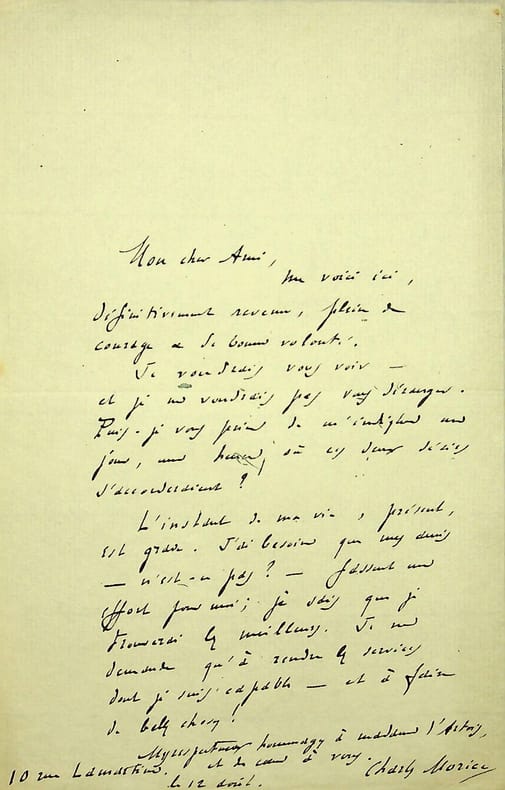 Mon cher Ami,
me voici ici,
définitivement revenu, plein de
courage & de bonne volonté.
Je voudrais vous voir —
et je ne voudrais pas vous déranger.
Puis-je vous prier de m'indiquer un
jour, une heure, où ces deux désirs
s'accorderaient ?
L'instant de ma vie, présent,
est grave. J'ai besoin que mes amis
— n'est-ce pas ? — fassent un
effort pour moi ; je sais que j'
trouverai les meilleurs. Je ne
demande qu'à rendre les services
dont je suis capable — et à faire
de belles choses !
hommages à madame
et de cœur à vous.
10 rue Lamartine.
Charles Morice
le 12 août.